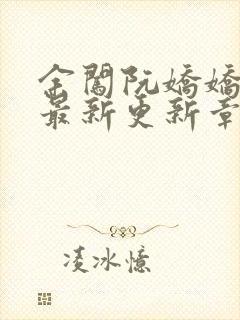 金闺阮嬌嬌
最新更新章
凌冰憶